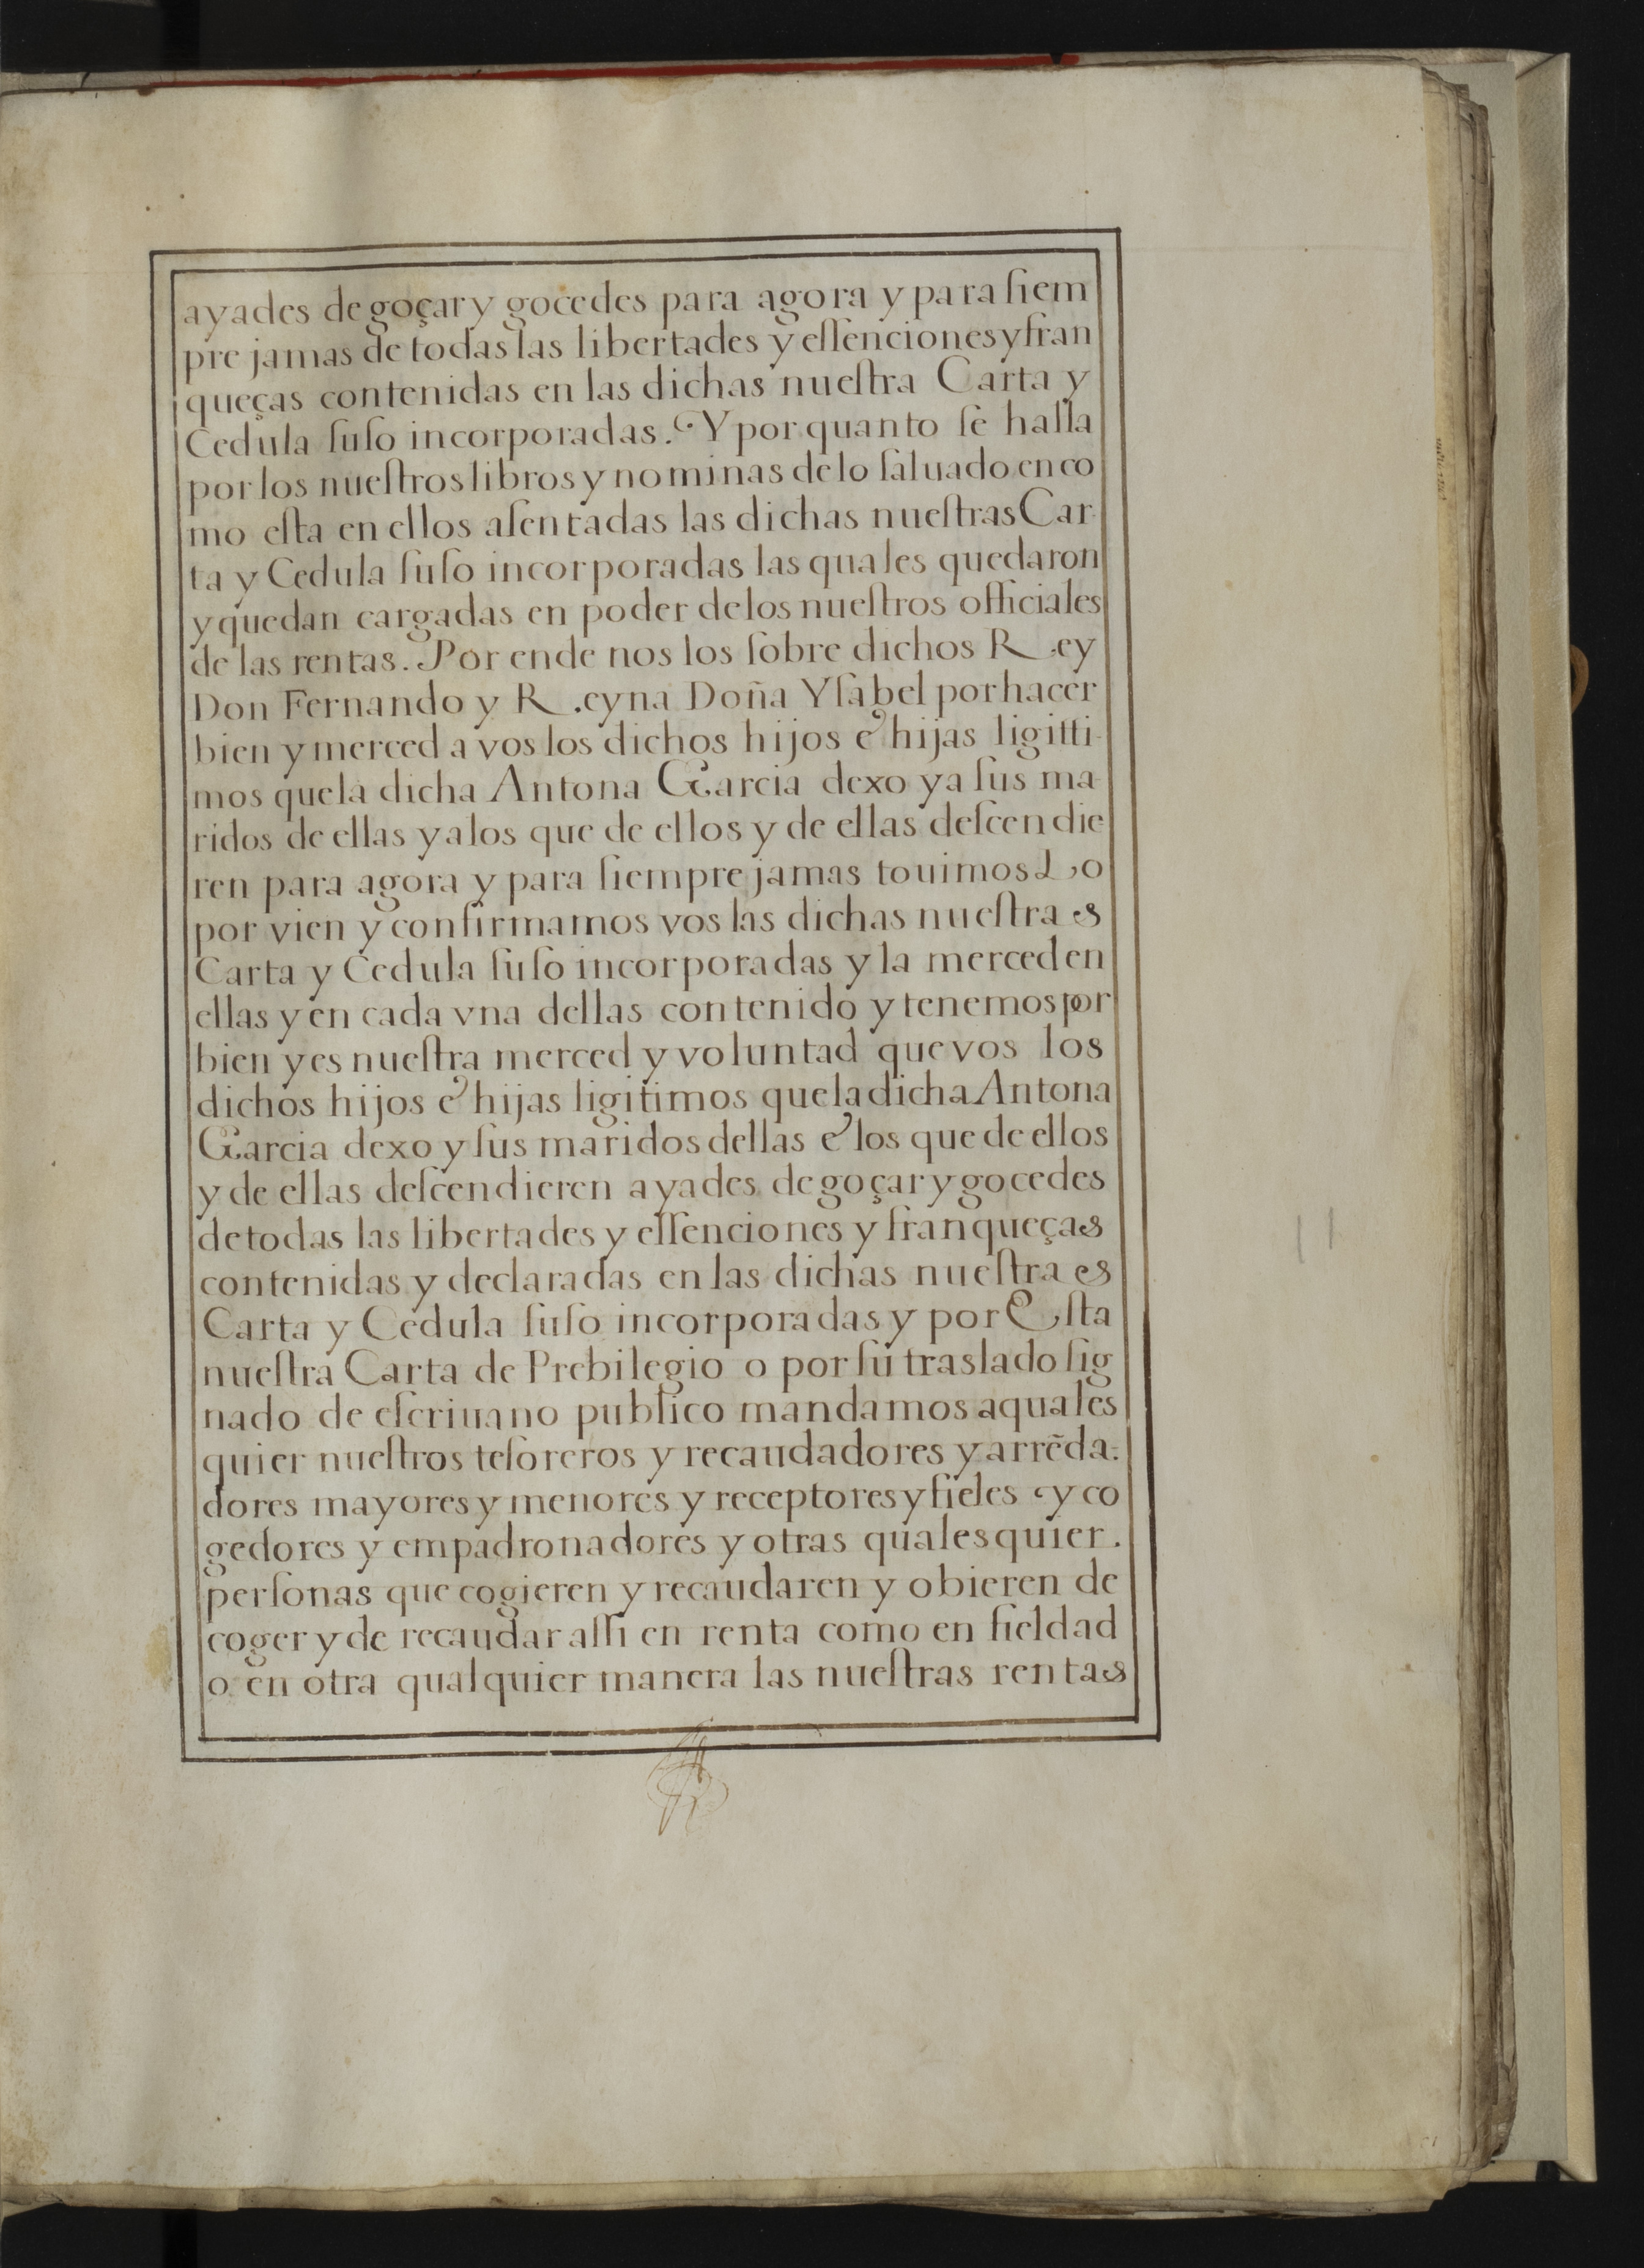 ayades de goçar y gocedes para agora y para ſiem
pre jamas de todas las libertades y eſſenciones y fran
queças contenidas en las dichas nueſtra Carta y
Cedula ſuſo incorporadas. Y por quanto ſe halla
por los nueſtros libros y nominas de lo ſaluado en co
mo eſta en ellos aſentadas las dichas nueſtras Car-
ta y Cedula ſuſo incorporadas las quales quedaron
y quedan cargadas en poder de los nueſtros officiales
de las rentas. Por ende nos los ſobre dichos Rey
Don Fernando y Reyna Doña Yſabel por hacer
bien y merced a vos los dichos hijos e hijas ligitti-
mos que la dicha Antona Garcia dexo y a ſus ma-
ridos de ellas y a los que de ellos y de ellas deſcendie
ren para agora y para ſiempre jamas touimos Lo
por vien y confirmamos vos las dichas nueſtras
Carta y Cedula ſuſo incorporadas y la merced en
ellas y en cada vna dellas contenido y tenemos por
bien y es nueſtra merced y voluntad que vos los
dichos hijos e hijas ligitimos que la dicha Antona
Garcia dexo y ſus maridos dellas e los que de ellos
y de ellas deſcendieren ayades de goçar y gocedes
de todas las libertades y eſſenciones y franqueças
contenidas y declaradas en las dichas nueſtras
Carta y Cedula ſuſo incorporadas y por Eſta
nueſtra Carta de Prebilegio o por ſu traslado ſig
nado de eſcriuano publico mandamos a quales
quier nueſtros teſoreros y recaudadores y arrẽda-
dores mayores y menores y receptores y fieles y co
gedores y empadronadores y otras quales quier.
perſonas que cogieren y recaudaren y obieren de
coger y de recaudar aſſi en renta como en fieldad
o en otra qualquier manera las nueſtras rentas
11